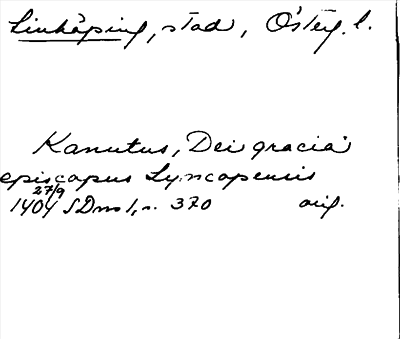 Linköping, stad, Österg. l.
Kanutus, Dei gracia
episcopus Lyncopensis
27/9
1404 SDns 1, n. 370 orig.